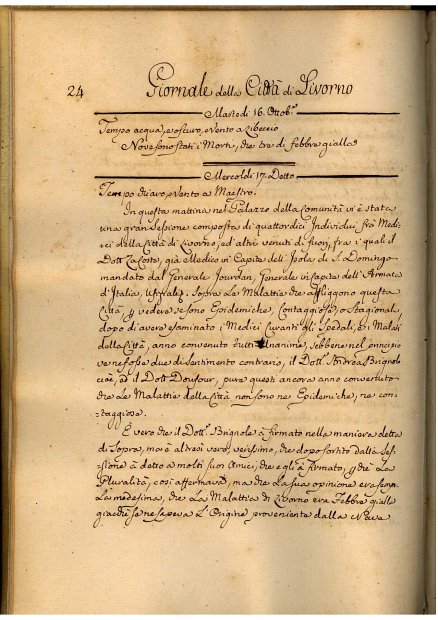 24 Giornale della Città di Livorno
Martedi 16. Ottob.ᵉ
Tempo acqua, e oscuro, e Vento a Libeccio
Nove sono stati i Morti, che tre di febbre gialla
Mercoldi 17. Detto
Tempo chiaro, e Vento a Maestro.
In questa mattina nel Palazzo della Comunità vi è stata
una gran Sessione composta di quattordici Individui frà Medi-
ci della Città di Livorno, ed altri venuti di fuori, fra i quali il
Dott. LaCoste, già Medico in Capite dell'Isola di S. Domingo
mandato dal Generale Jourdan, Generale in Capite dell'Armata
d'Italia, Sopra Le Malattie che affliggono questa
Città, p vedere se sono Epidemiche, Contaggiose, o Stagionali,
dopo di avere esaminato i Medici Curanti gli Spedali, e i Malati
della Città, anno convenuto tutti Unanime, sebbene nel principio
ve ne fosse due di sentimento contrario, il Dott. Andrea Brignole
cioè, ed il Dott. Doufour, pure questi ancora anno convertuto
che Le Malattie della Città non sono ne Epidemiche, ne con-
taggiose.
È vero che il Dott. Brignole à firmato nella maniera detta
di Sopra, ma è altresì vero, verissimo, che dopo sortito dalla Ses-
sione à detto a molti suoi Amici, che egli à firmato, p che La
Pluralità, così affermava, ma che La sua opinione era sempr.
La medesima, che La Malattia di Livorno era Febbre gialla
giacchè se ne sapeva L'Origine proveniente dalla Nave